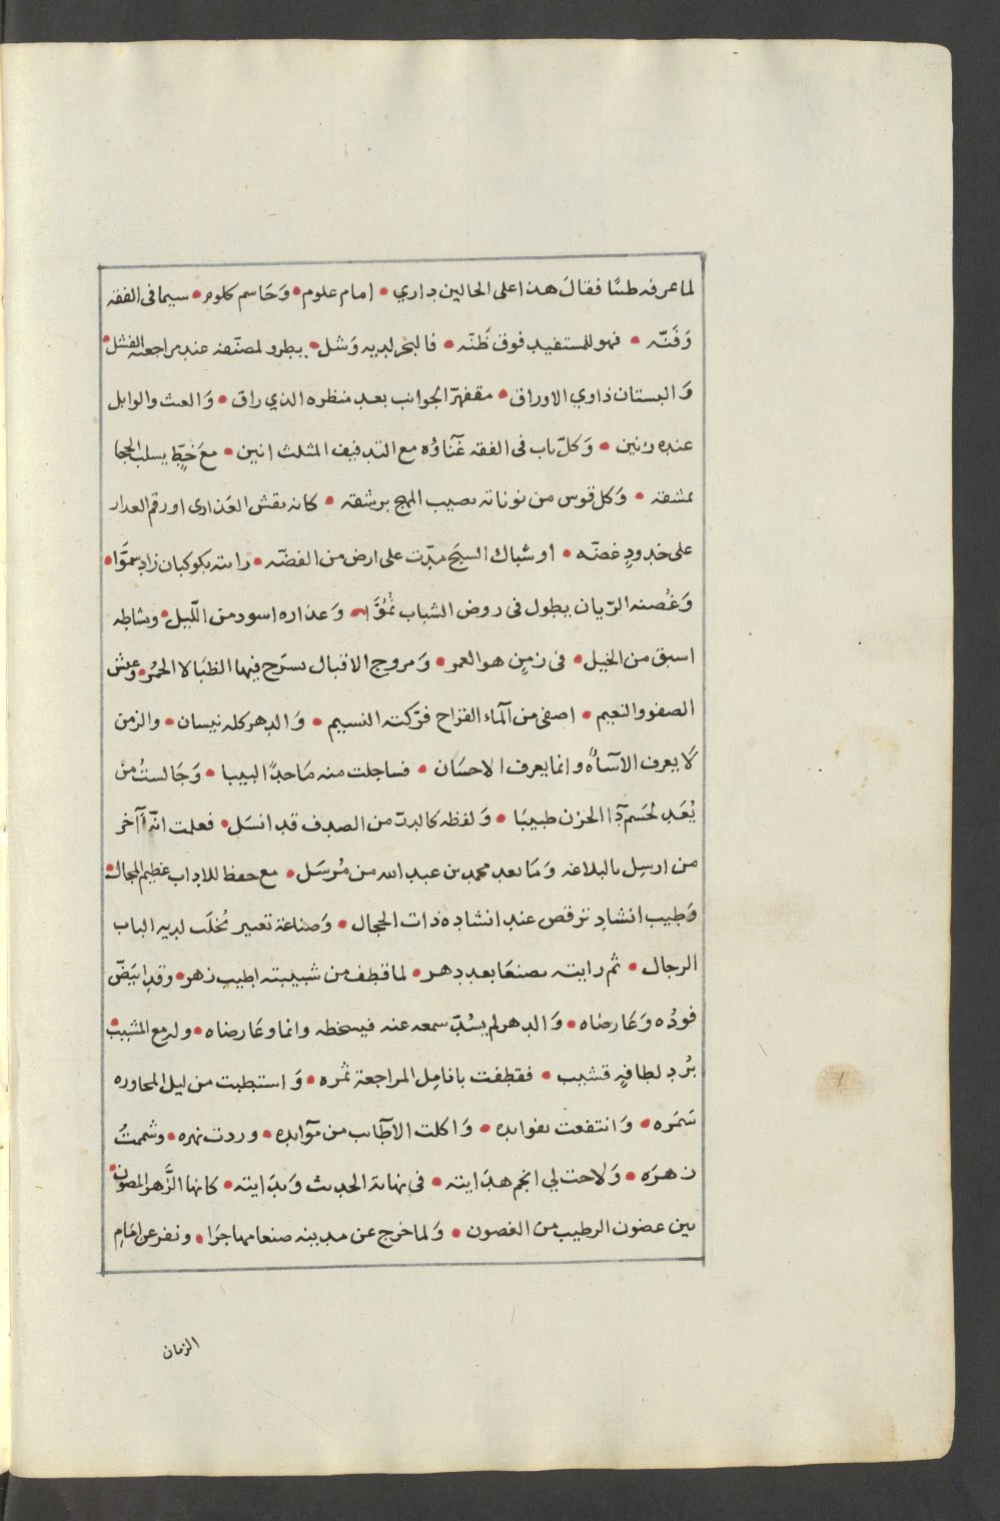 لما عرفه طشا فقالَ هذا على الحالين داري • امام علوم • وَحَاسم كلوم • سيما فى الفقه
وَفَنّه • فهو للمستفيد فوق ظَنّه • فالبحر لديه وَشل • يطرو لمصنّفه عند مراجعته الفشل •
وَالبستان ذاوي الاوراق • مقفهرّ الجوانب بعد منظره الذي راق • وَالعث والوابل
عنده رنين • وَكلّ باب فى الفقه غَنَاؤه مع التدفيف المثلث انين • معَ خَطٍّ يسلب الحجا
بمشقه • وَكل قوس من نوناته تصيب المهج برشقه • كانه نقش العَذارى او رقم العدار
على خدودٍ غضّه • او شباك السبَج مدّت على ارض من الفضّه • رايته بكوكبان زاد سموّا •
وَغُصنه الريّان يطول فى روض الشباب نُمُوَّا • وَعذاره اسود من اللّيل • ونشاطه
اسبق من الخيل • فى زمنٍ هو العمر • وَمروج الاقبال تسرح فيها الظبَا لا الحمُر • وعيش
الصفو والنعيم • اصفى من آلماء القراح فرّكته النسيم • وَالدهر كله نيسان • والزمن
لَا يعرف الاسآءه وانما يعرف الاحسَان • فساجلت منه مَاحدًا لبيبا • وَجَالستُ من
يُعَد لحَسم دآ الحزن طبيبَا • وَلفظه كالبدّ من الصدف قد انسَل • فعلمت انّه آخر
من ارسل بالبلاغه وَمَا بعد محمد بن عبد الله من مُرسَل • مع حفظ للاداب عظيم المجال •
وَطيب انشادٍ ترقص عند انشاده ذات الحجال • وَصناعة تعبير تُخلَب لديه الباب
الرجال • ثم رايته بصنعَا بعد دهر • لما قطف من شبيبته اطيب زهر • وقد ابيَضّ
فودُه وَعَارضاه • وَالدهر لم يسُدّ سمعه عنه فيسخطه وانما وعَا رضاه • وله مع المشيب •
بُردِ لطافهٍ قشيب • فقطفت بانامِل المراجعة ثمره • وَاستطبت من ليل المحاوره
سَمَره • وَانتفعت بفوايده • وَاكلت الاطَايب من موَايده • وردت نهره • وشممتُ
زهرَه • وَلاحت لي انجم هدَايته • فى نهاية الحديث وَبدَايته • كانها الزَّهر المصون •
بين غضون الرطيب من الغصون • وَلما خرج عن مدينه صنعا مهاجرَا • ونفر عن امَامِ
الزمان